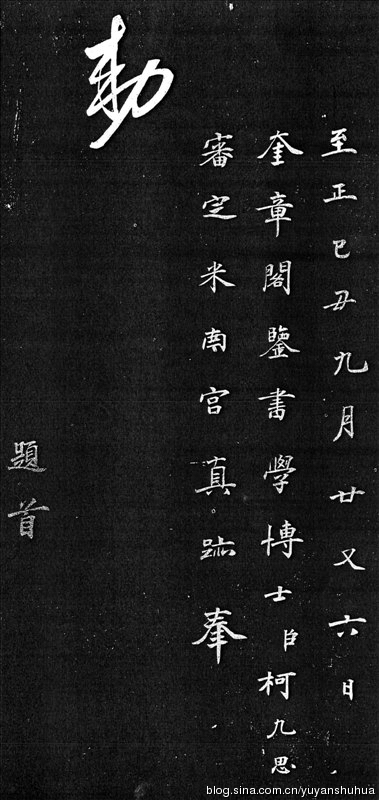 至正己丑九月廿又六日
奎章閣鑒書學博士臣柯九思
審定米南宮真跡奉
勅
題首
blog.sina.com.cn/yuyanshuhua